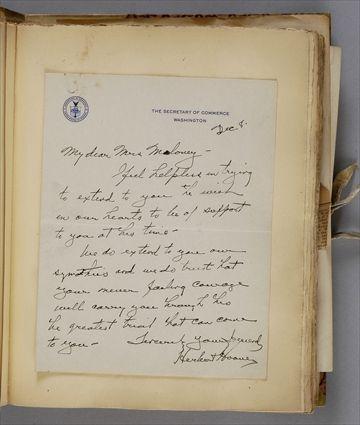 THE SECRETARY OF COMMERCE
WASHINGTON
Dec 8.
My dear Mrs Meloney –
I feel helpless in trying
to extend to you the wish
in our hearts to be of support
to you at this time –
We do extend to you our
sympathies and we do trust that
your never failing courage
will carry you through this
the greatest trial that can come
to you –
Sincerely your friend,
Herbert Hoover